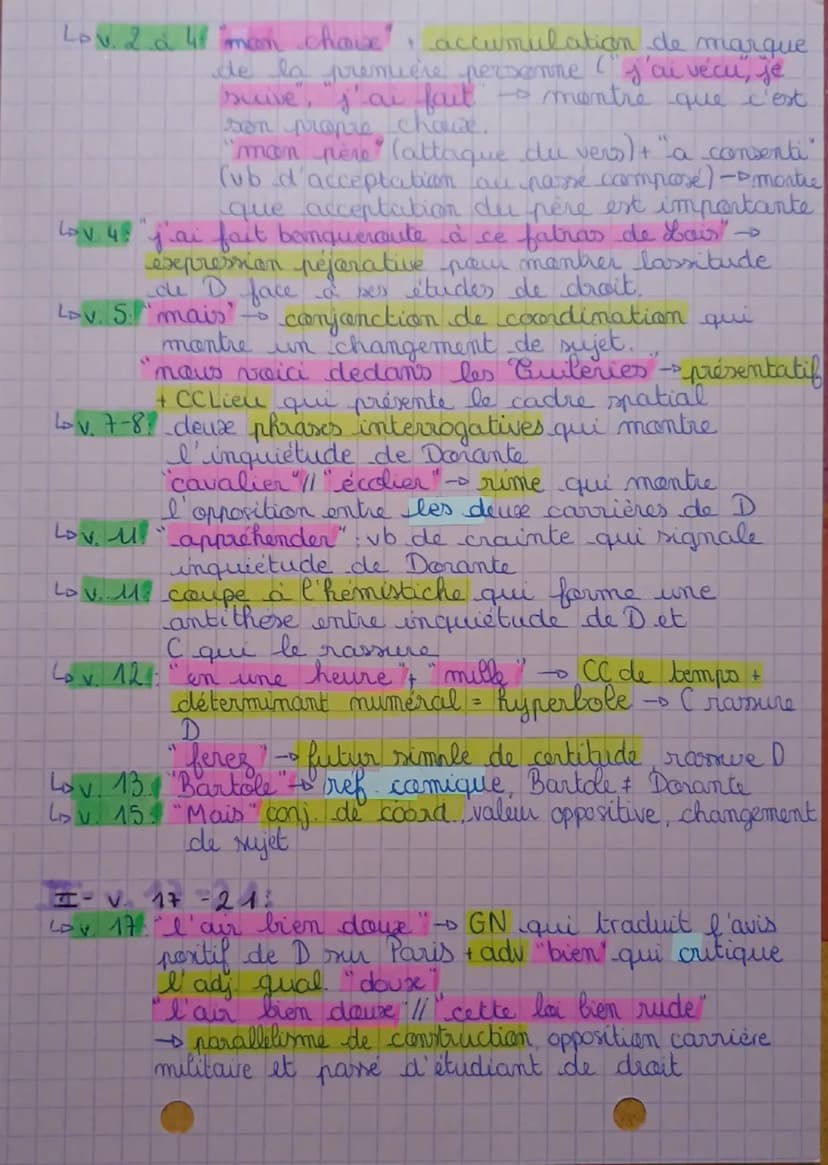 ↳ v. 2 à 4: "mon choix", accumulation de marque
de la première personne ("j'ai vécu", je
suive", "j'ai fait" → montre que c'est
son propre choix.
"mon père" (attaque du vers) + "a consenti"
(vb d'acceptation au passé composé) → montre
que acceptation du père est importante
↳ v. 4: "j'ai fait banqueroute à ce fatras de Lois" →
expression péjorative pour montrer lassitude
de D face à ses études de droit.
↳ v. 5: "mais" → conjonction de coordination qui
montre un changement de sujet.
"nous voici dedans les Tuileries" → présentatif
+ CCLieu qui présente le cadre spatial
↳ v. 7-8: deux phrases interrogatives qui montre
l'inquiétude de Dorante
"cavalier" // "écolier" → rime qui montre
l'opposition entre les deux carrières de D
↳ v. 11: "appréhender": vb de crainte qui signale
inquiétude de Dorante
↳ v. 11: coupe à l'hémistiche qui forme une
antithèse entre inquiétude de D et
C qui le rassure
↳ v. 12: "en une heure" + "mille" → CC de temps +
déterminant numéral = hyperbole → C rassure
D
"ferez" → futur simple de certitude, rassure D
↳ v. 13: "Bartole" → réf. comique, Bartole ≠ Dorante
↳ v. 15: "Mais" conj. de coord., valeur oppositive, changement
de sujet
II- v. 17-21:
↳ v. 17: "l'air bien doux" → GN qui traduit l'avis
positif de D sur Paris + adv "bien" qui critique
l'adj qual. "doux"
"l'air bien doux" // "cette loi bien rude"
→ parallélisme de construction, opposition carrière
militaire et passé d'étudiant de droit